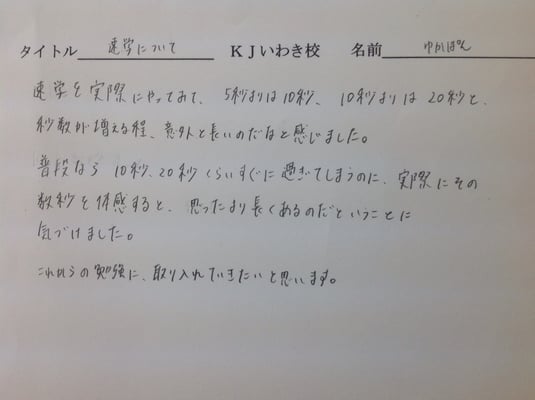 タイトル 速学について KJいわき校 名前 ゆかぽん
速学を実際にやってみて、5秒よりは10秒、10秒よりは20秒と、
秒数が増える程、意外と長いのだなと感じました。
普段なら10秒、20秒くらいすぐに過ぎてしまうのに、実際にその
数秒を体感すると、思ったより長くあるのだということに
気づけました。
これからの勉強に、取り入れていきたいと思います。